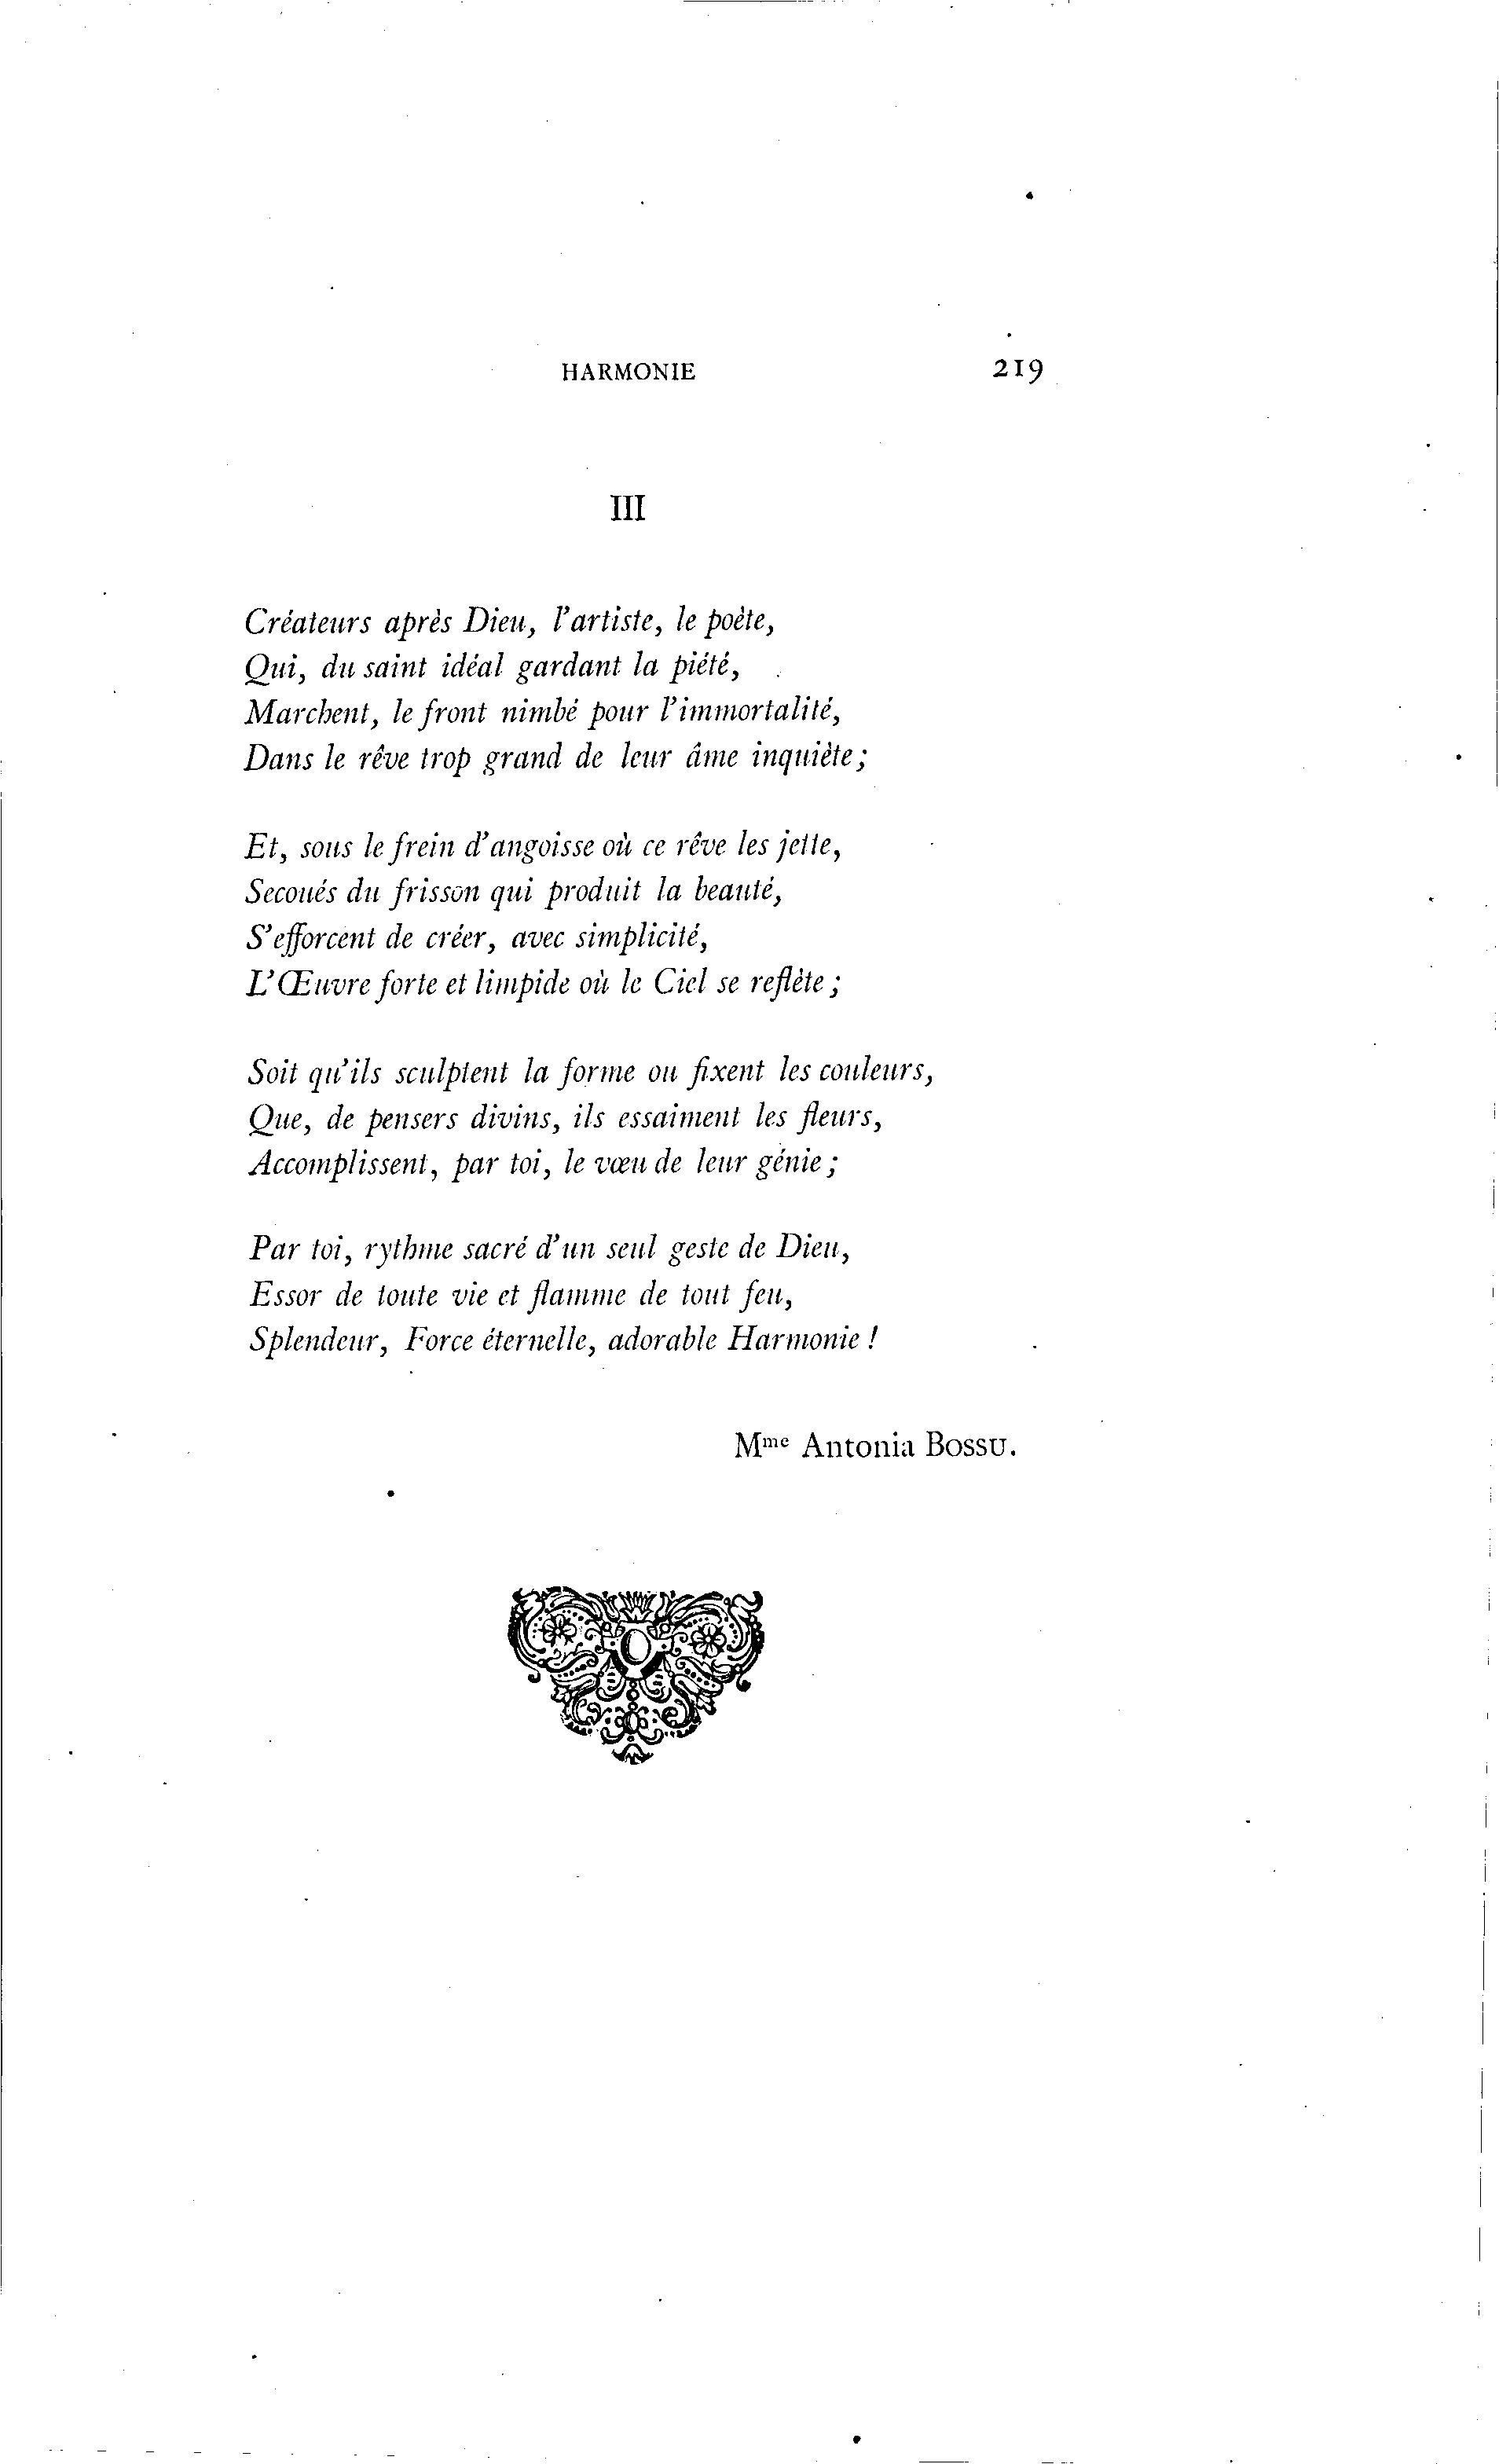 HARMONIE 219
III
Créateurs après Dieu, l'artiste, le poète,
Qui, du saint idéal gardant la piété,
Marchent, le front nimbé pour l'immortalité,
Dans le rêve trop grand de leur âme inquiète ;
Et, sous le frein d'angoisse où ce rêve les jette,
Secoués du frisson qui produit la beauté,
S'efforcent de créer, avec simplicité,
L'Œuvre forte et limpide où le Ciel se reflète ;
Soit qu'ils sculptent la forme ou fixent les couleurs,
Que, de pensers divins, ils essaiment les fleurs,
Accomplissent, par toi, le vœu de leur génie ;
Par toi, rythme sacré d'un seul geste de Dieu,
Essor de toute vie et flamme de tout feu,
Splendeur, Force éternelle, adorable Harmonie !
Mme Antonia BOSSU.